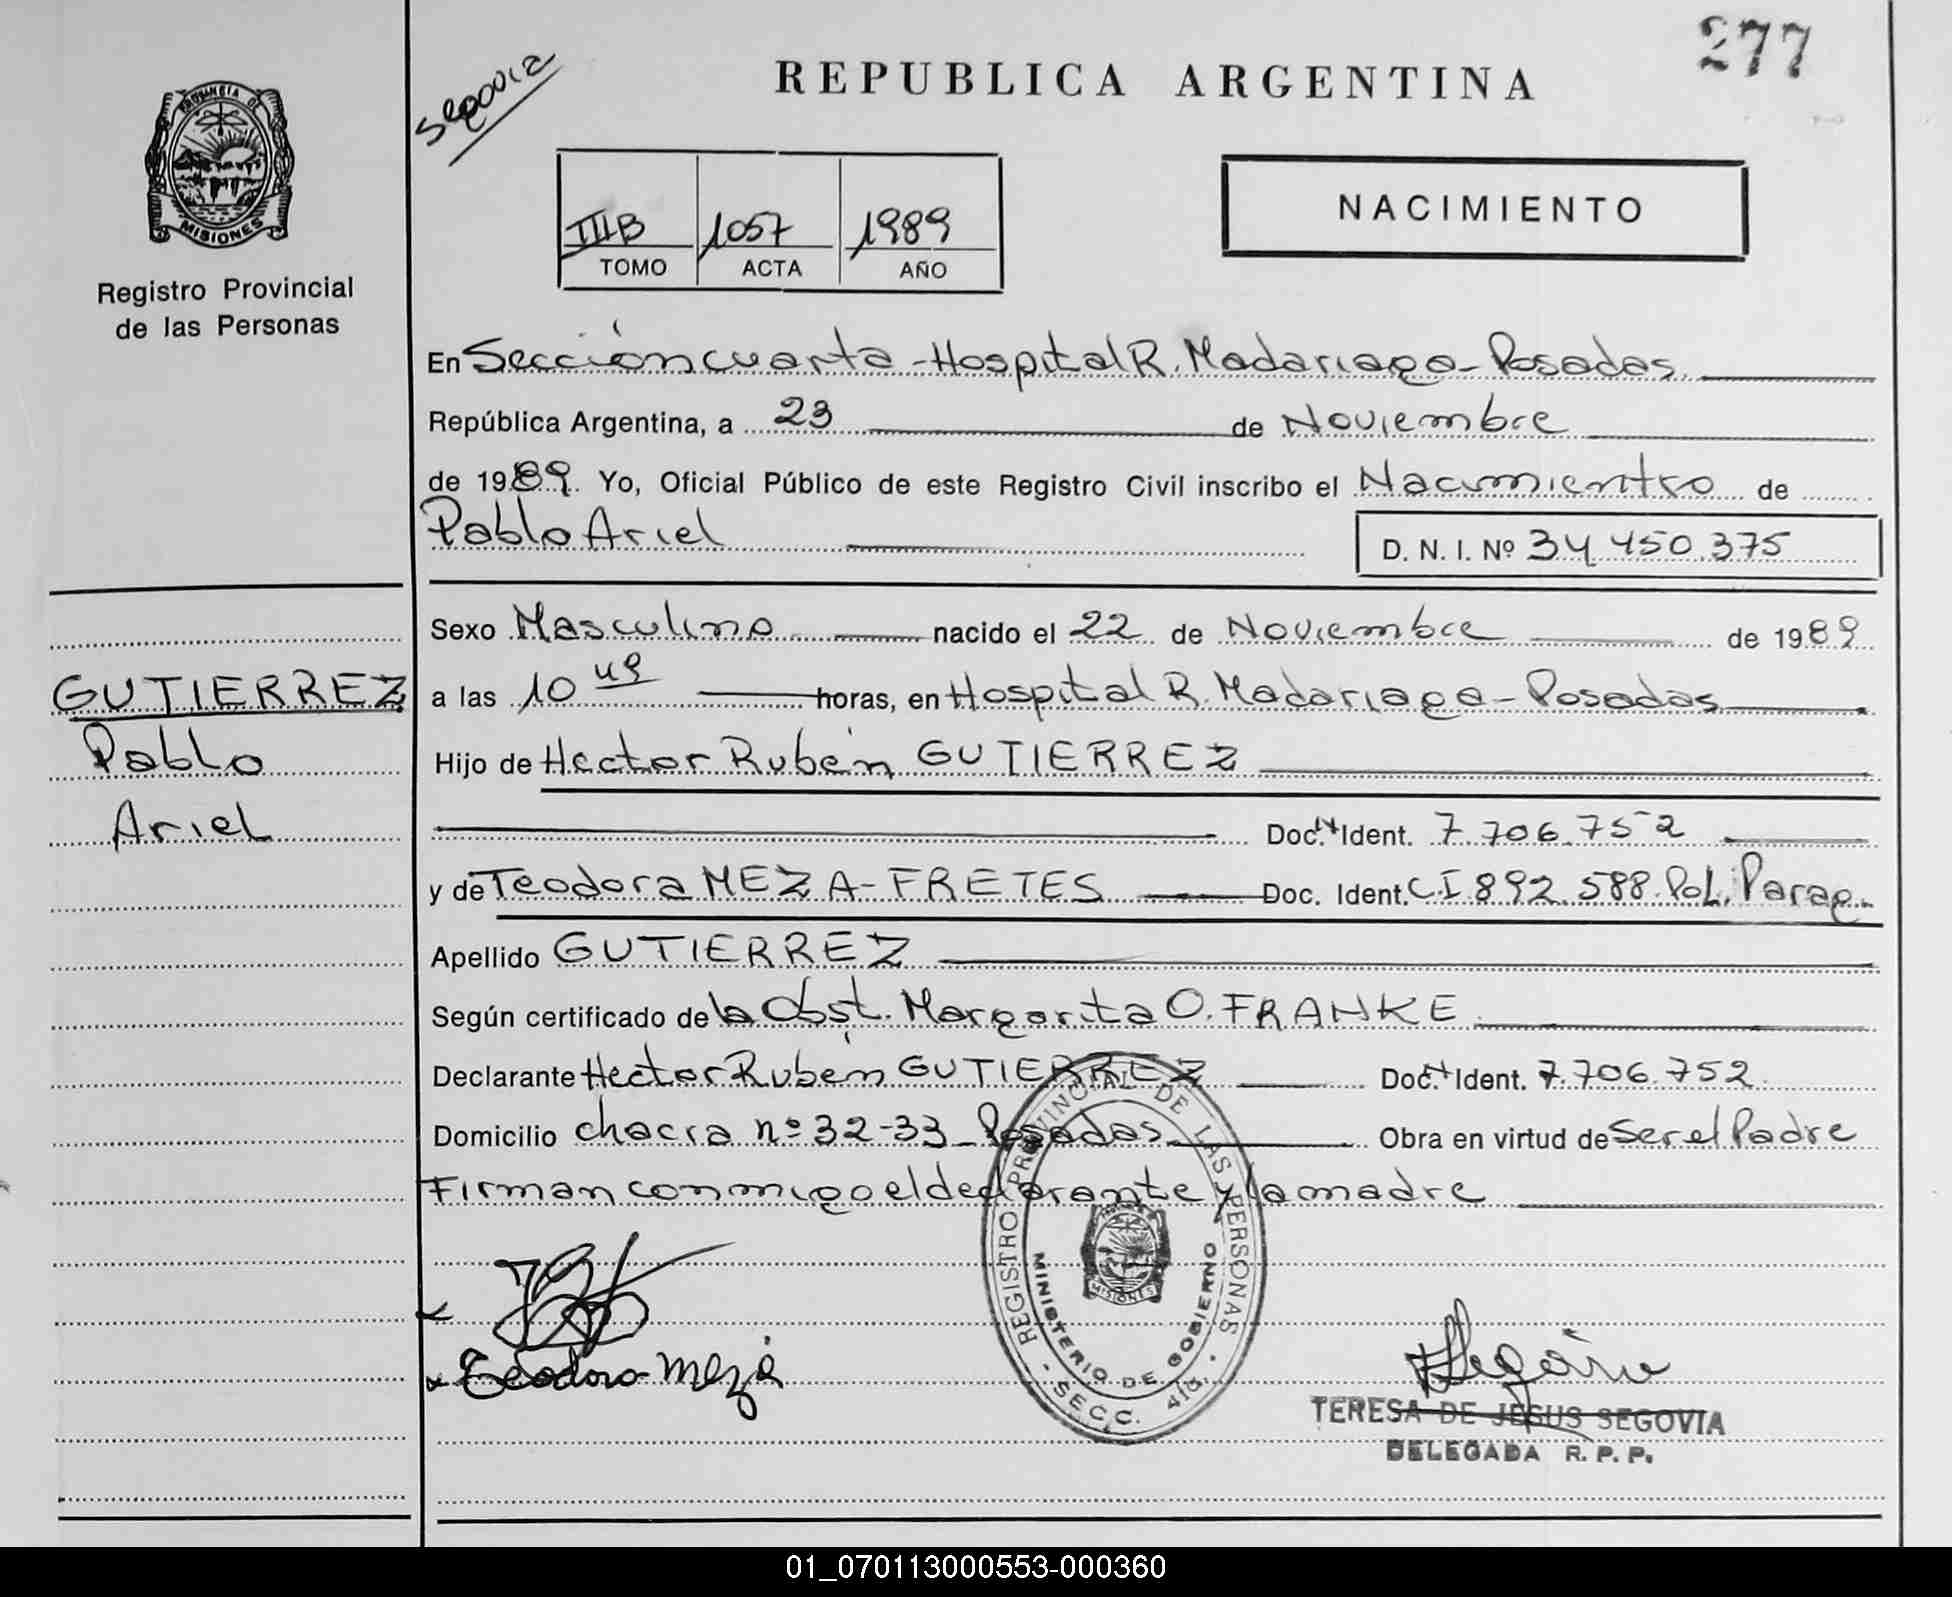 277
Segovia
REPUBLICA ARGENTINA
PROVINCIA DE
MISIONES
Registro Provincial
de las Personas
III B 1057 1989
TOMO ACTA AÑO
NACIMIENTO
En Sección cuarta - Hospital R. Madariaga - Posadas
República Argentina, a 23 de Noviembre
de 1989. Yo, Oficial Público de este Registro Civil inscribo el Nacimientro de
Pablo Ariel D. N. I. Nº 34 450.375
Sexo Masculino nacido el 22 de Noviembre de 1989
a las 10 49 horas, en Hospital R. Madariaga - Posadas
Hijo de Hector Rubén GUTIERREZ
Doc. Ident. 7.706.752
y de Teodora MEZA-FRETES Doc. Ident. C.I. 892.588. Pol. Parag.
Apellido GUTIERREZ
Según certificado de la Obst. Margarita O. FRANKE
Declarante Hector Rubén GUTIERREZ Doc. Ident. 7.706.752.
Domicilio chacra nº 32-33 - Posadas Obra en virtud de Ser el Padre
Firman conmigo el declarante y la madre
GUTIERREZ
Pablo
Ariel
Teodora Meza
REGISTRO PROVINCIAL DE LAS PERSONAS
MINISTERIO DE GOBIERNO
MISIONES
SECC. 4ta.
TERESA DE JESUS SEGOVIA
DELEGADA R. P. P.
01_070113000553-000360